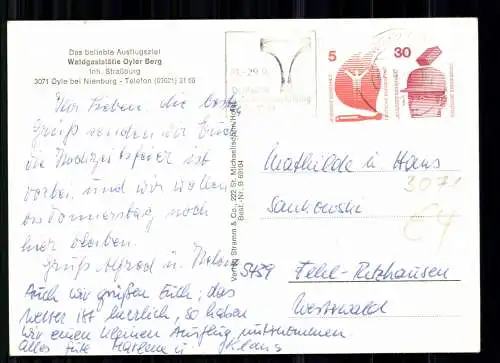 Das beliebte Ausflugsziel
Waldgaststätte Oyler Berg
Inh. Straßburg
3071 Oyle bei Nienburg - Telefon (05021) 31 66
Ihr Lieben die besten
Grüße senden wir Euch
die Hochzeitsfeier ist
vorbei und wir wollen
bis Donnerstag noch
hier bleiben.
Gruß Alfred u.
Auch wir grüßen Euch, das
Wetter ist herrlich, so haben
wir einen kleinen Ausflug mitgenommen
Alles Gute u. Klaus
Verlag Stramm & Co., 222 St. Michaelisdonn/Holst.
Best.-Nr. B 69104
-29.9.
5
30
DEUTSCHE BUNDESPOST
DEUTSCHE BUNDESPOST
Mathilde u Hans
Sankowski
5439
Fehl-Ritzhausen
Westerwald
3071